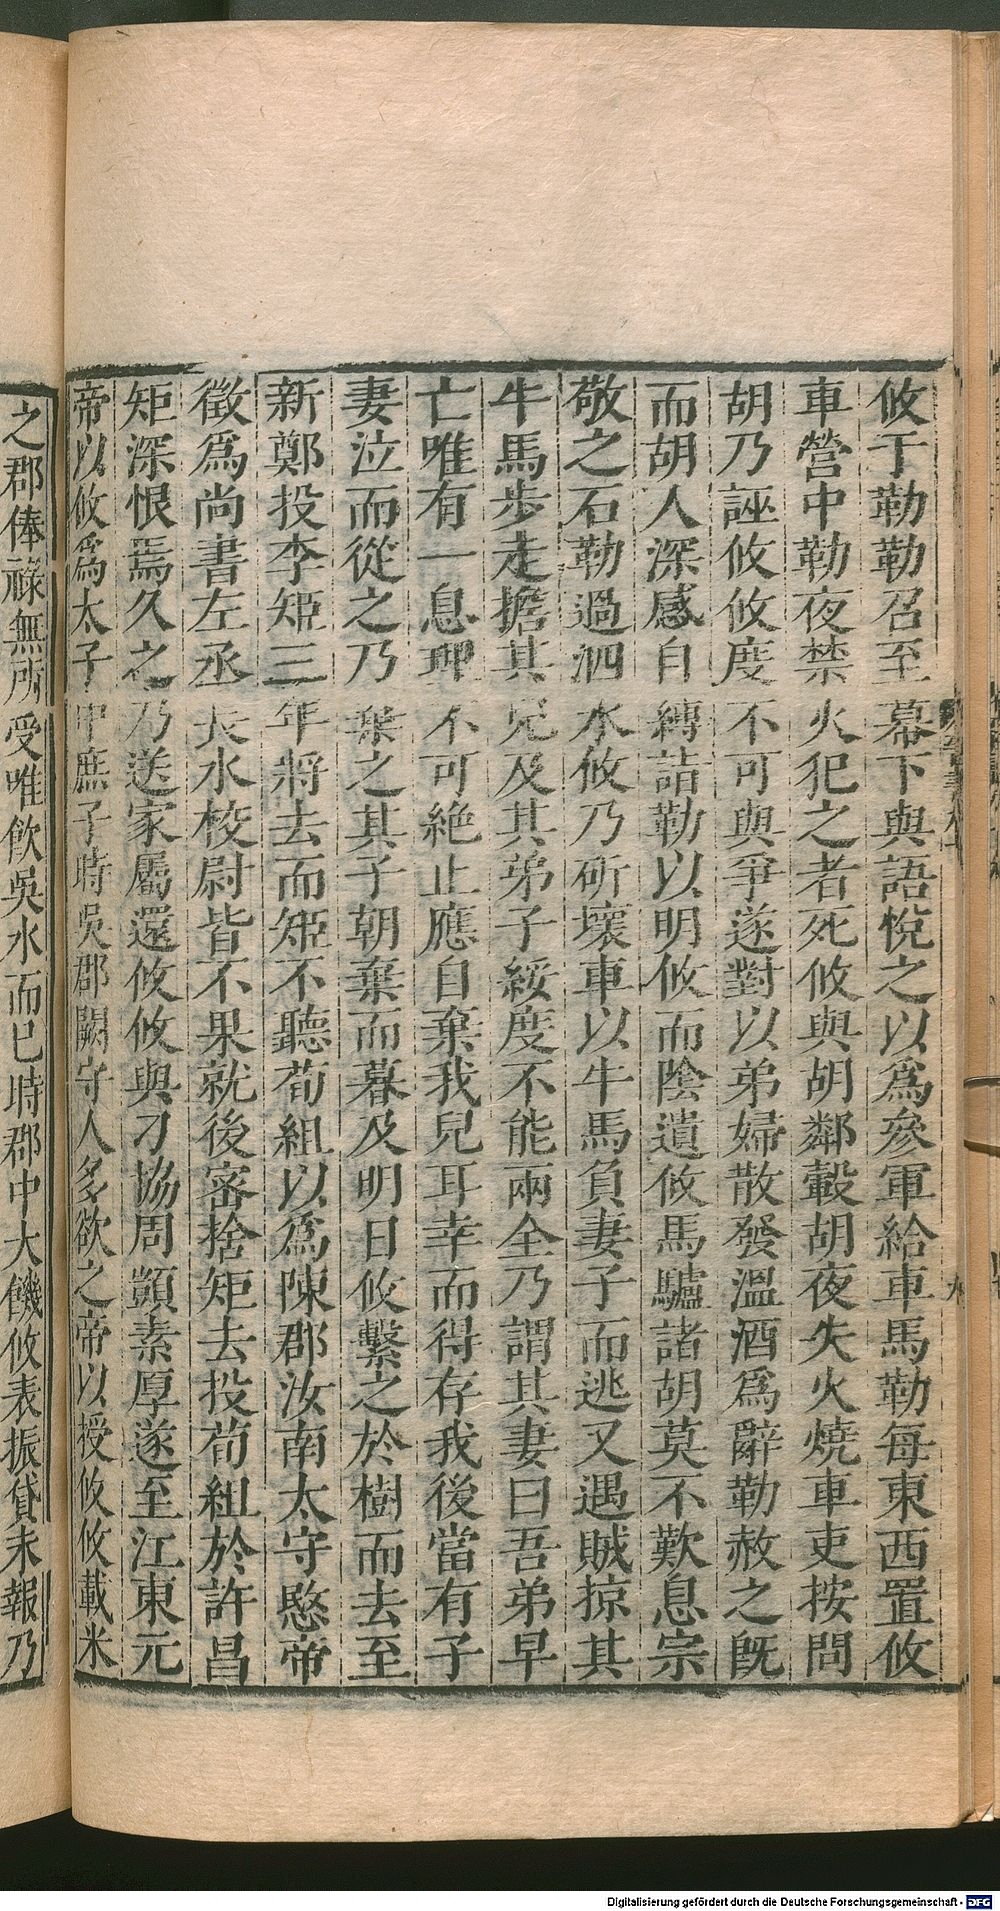 攸于勒勒召至幕下與語悅之以爲參軍給車馬勒每東西置攸
車營中勒夜禁火犯之者死攸與胡鄰轂胡夜失火燒車吏按問
胡乃誣攸攸度不可與爭遂對以弟婦散發溫酒爲辭勒赦之旣
而胡人深感自縛詣勒以明攸而陰遺攸馬驢諸胡莫不歎息宗
敬之石勒過泗水攸乃斫壞車以牛馬負妻子而逃又遇賊掠其
牛馬步走擔其兒及其弟子綏度不能兩全乃謂其妻曰吾弟早
亡唯有一息理不可絕止應自棄我兒耳幸而得存我後當有子
妻泣而從之乃棄之其子朝棄而暮及明日攸繫之於樹而去至
新鄭投李矩三年將去而矩不聽荀組以爲陳郡汝南太守愍帝
徵爲尚書左丞長水校尉皆不果就後密捨矩去投荀組於許昌
矩深恨焉久之乃送家屬還攸攸與刁協周顗素厚遂至江東元
帝以攸爲太子中庶子時吳郡闕守人多欲之帝以授攸攸載米
之郡俸祿無所受唯飮吳水而已時郡中大饑攸表振貸未報乃
Digitalisierung gefördert durch die Deutsche Forschungsgemeinschaft - DFG